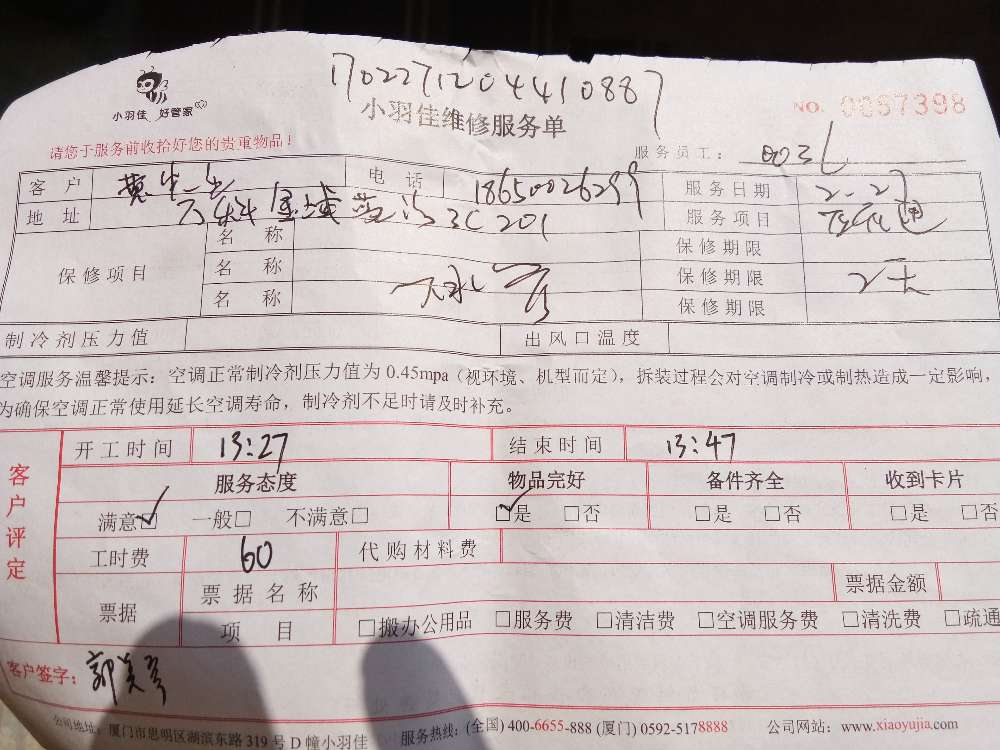 17022712044410887
小羽佳 好管家
小羽佳维修服务单
NO. 0057398
请您于服务前收拾好您的贵重物品！
服务员工：
客户 电话 18650026299 服务日期 2.27
地址 3C 201 服务项目
保修项目 名称 保修期限
名称 保修期限 2天
名称 保修期限
制冷剂压力值 出风口温度
空调服务温馨提示：空调正常制冷剂压力值为 0.45mpa（视环境、机型而定），拆装过程会对空调制冷或制热造成一定影响，
为确保空调正常使用延长空调寿命，制冷剂不足时请及时补充。
客户评定
开工时间 13:27 结束时间 13:47
服务态度 物品完好 备件齐全 收到卡片
满意☑ 一般□ 不满意□ ☑是 □否 □是 □否 □是 □否
工时费 60 代购材料费
票据 票据名称 票据金额
项目 □搬办公用品 □服务费 □清洁费 □空调服务费 □清洗费 □疏通
客户签字：郭美彦
公司地址：厦门市思明区湖滨东路 319 号 D 幢小羽佳 服务热线：(全国) 400-6655-888 (厦门) 0592-5178888 公司网站：www.xiaoyujia.com